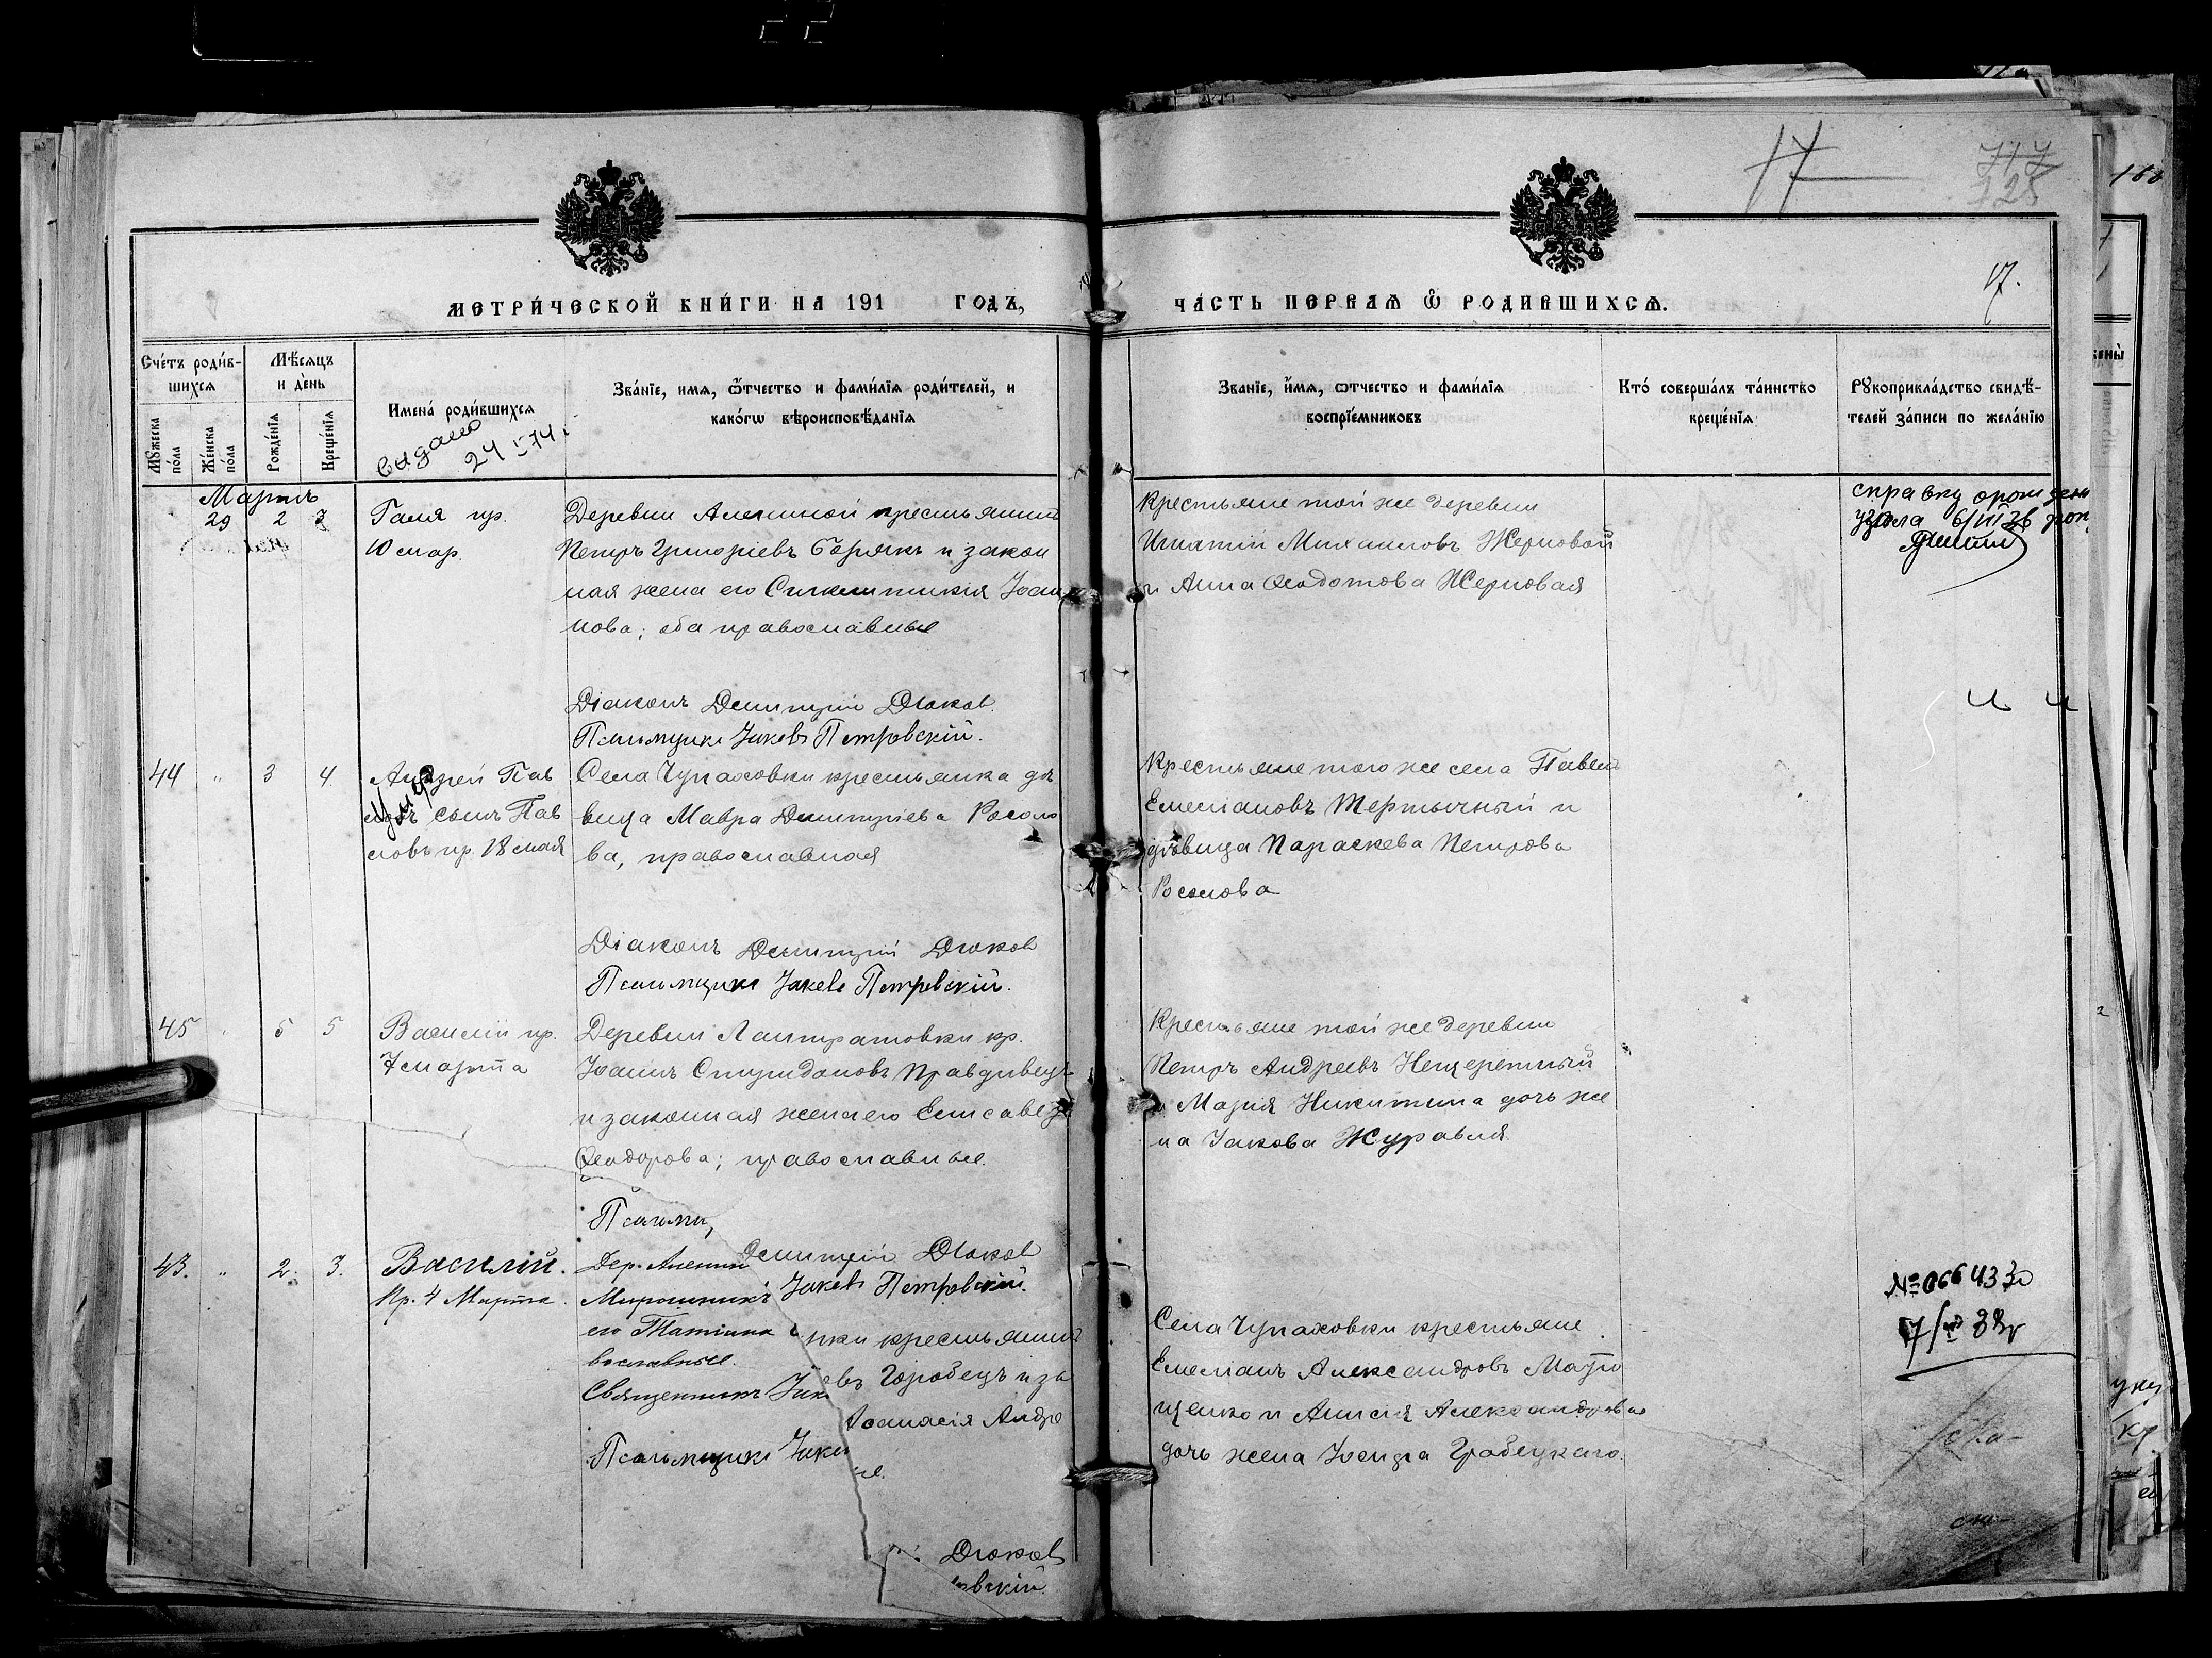 17
717
125
168
17.
МЕТРИ́ЧЕСКОЙ КНИ́ГИ НА 191 ГОДЪ,
ЧА́СТЬ ПЕ́РВАЯ Ѡ҆ РОДИ́ВШИХСѦ.
Сче́тъ роди́в-
шихся
Мꙋ́жеска
по́ла
Же́нска
по́ла
Мѣ́сяцъ
и де́нь
Рожде́нїѧ
Креще́нїѧ
Имена́ роди́вшихся
выдано
24 I 74 г
Зва́нїе, имѧ, ѻ҆́тчество и фами́лїѧ роди́телей, и
како́гѡ вѣроисповѣ́данїѧ
Зва́нїе, и҆́мѧ, ѻтчество и фами́лїѧ
воспрїе́мниковъ
Кто́ соверша́лъ та́инство
креще́нїѧ
Рꙋкоприкла́дство свидѣ́-
телей за́писи по жела́нїю
Мартъ
29 2 3
Галя пр.
10 мар.
Деревни Алешиной крестьянинъ
Петръ Григоріевъ Борякъ и закон
ная жена его Синклитикія Іоан
нова; оба православные
Діаконъ Димитрій Дюков.
Псаломщикъ Іаковъ Петровскій.
Крестьяне той же деревни
Игнатій Михаиловъ Жерновой
и Анна Ѳеодотова Жерновая
справку о рожден
узяла 6/III 36 рок
44 " 3 4
Андрей Пав
ловъ сынъ Пав
ловъ пр. 18 мая
умер
Села Чупаховки крестьянка дѣ
вица Мавра Димитріева Росоло
ва, православная
Діаконъ Димитрій Дюков
Псаломщикъ Іаковъ Петровскій.
Крестьяне того же села Павелъ
Емеліановъ Тертычный и
дѣвица Параскева Петрова
Росолова
45 " 5 5
Василій пр.
7 марта
Деревни Лантратовки кр.
Іоаннъ Спиридоновъ Правдивецъ
и законная жена его Елисавета
Ѳеодорова; православные.
Псалом,
Димитрій Дюков
Іаковъ Петровскій.
Крестьяне той же деревни
Петръ Андреевъ Нещеретный
и Марія Никитина дочь же
на Іакова Журавля.
43. " 2. 3.
Василій.
Кр. 4 Марта.
Дер. Алешин
Мирошникъ
его Татіана
вославные.
Священникъ Іак
Псаломщикъ Іаков
нки крестьянинъ
въ Горобецъ и за
Аѳанасія Андре
ые.
Дюков
овскій.
Села Чупаховки крестьяне
Емеліанъ Александровъ Матю
щенко и Анисія Александрова
дочь жена Іосифа Грабецкаго.
№ 066433